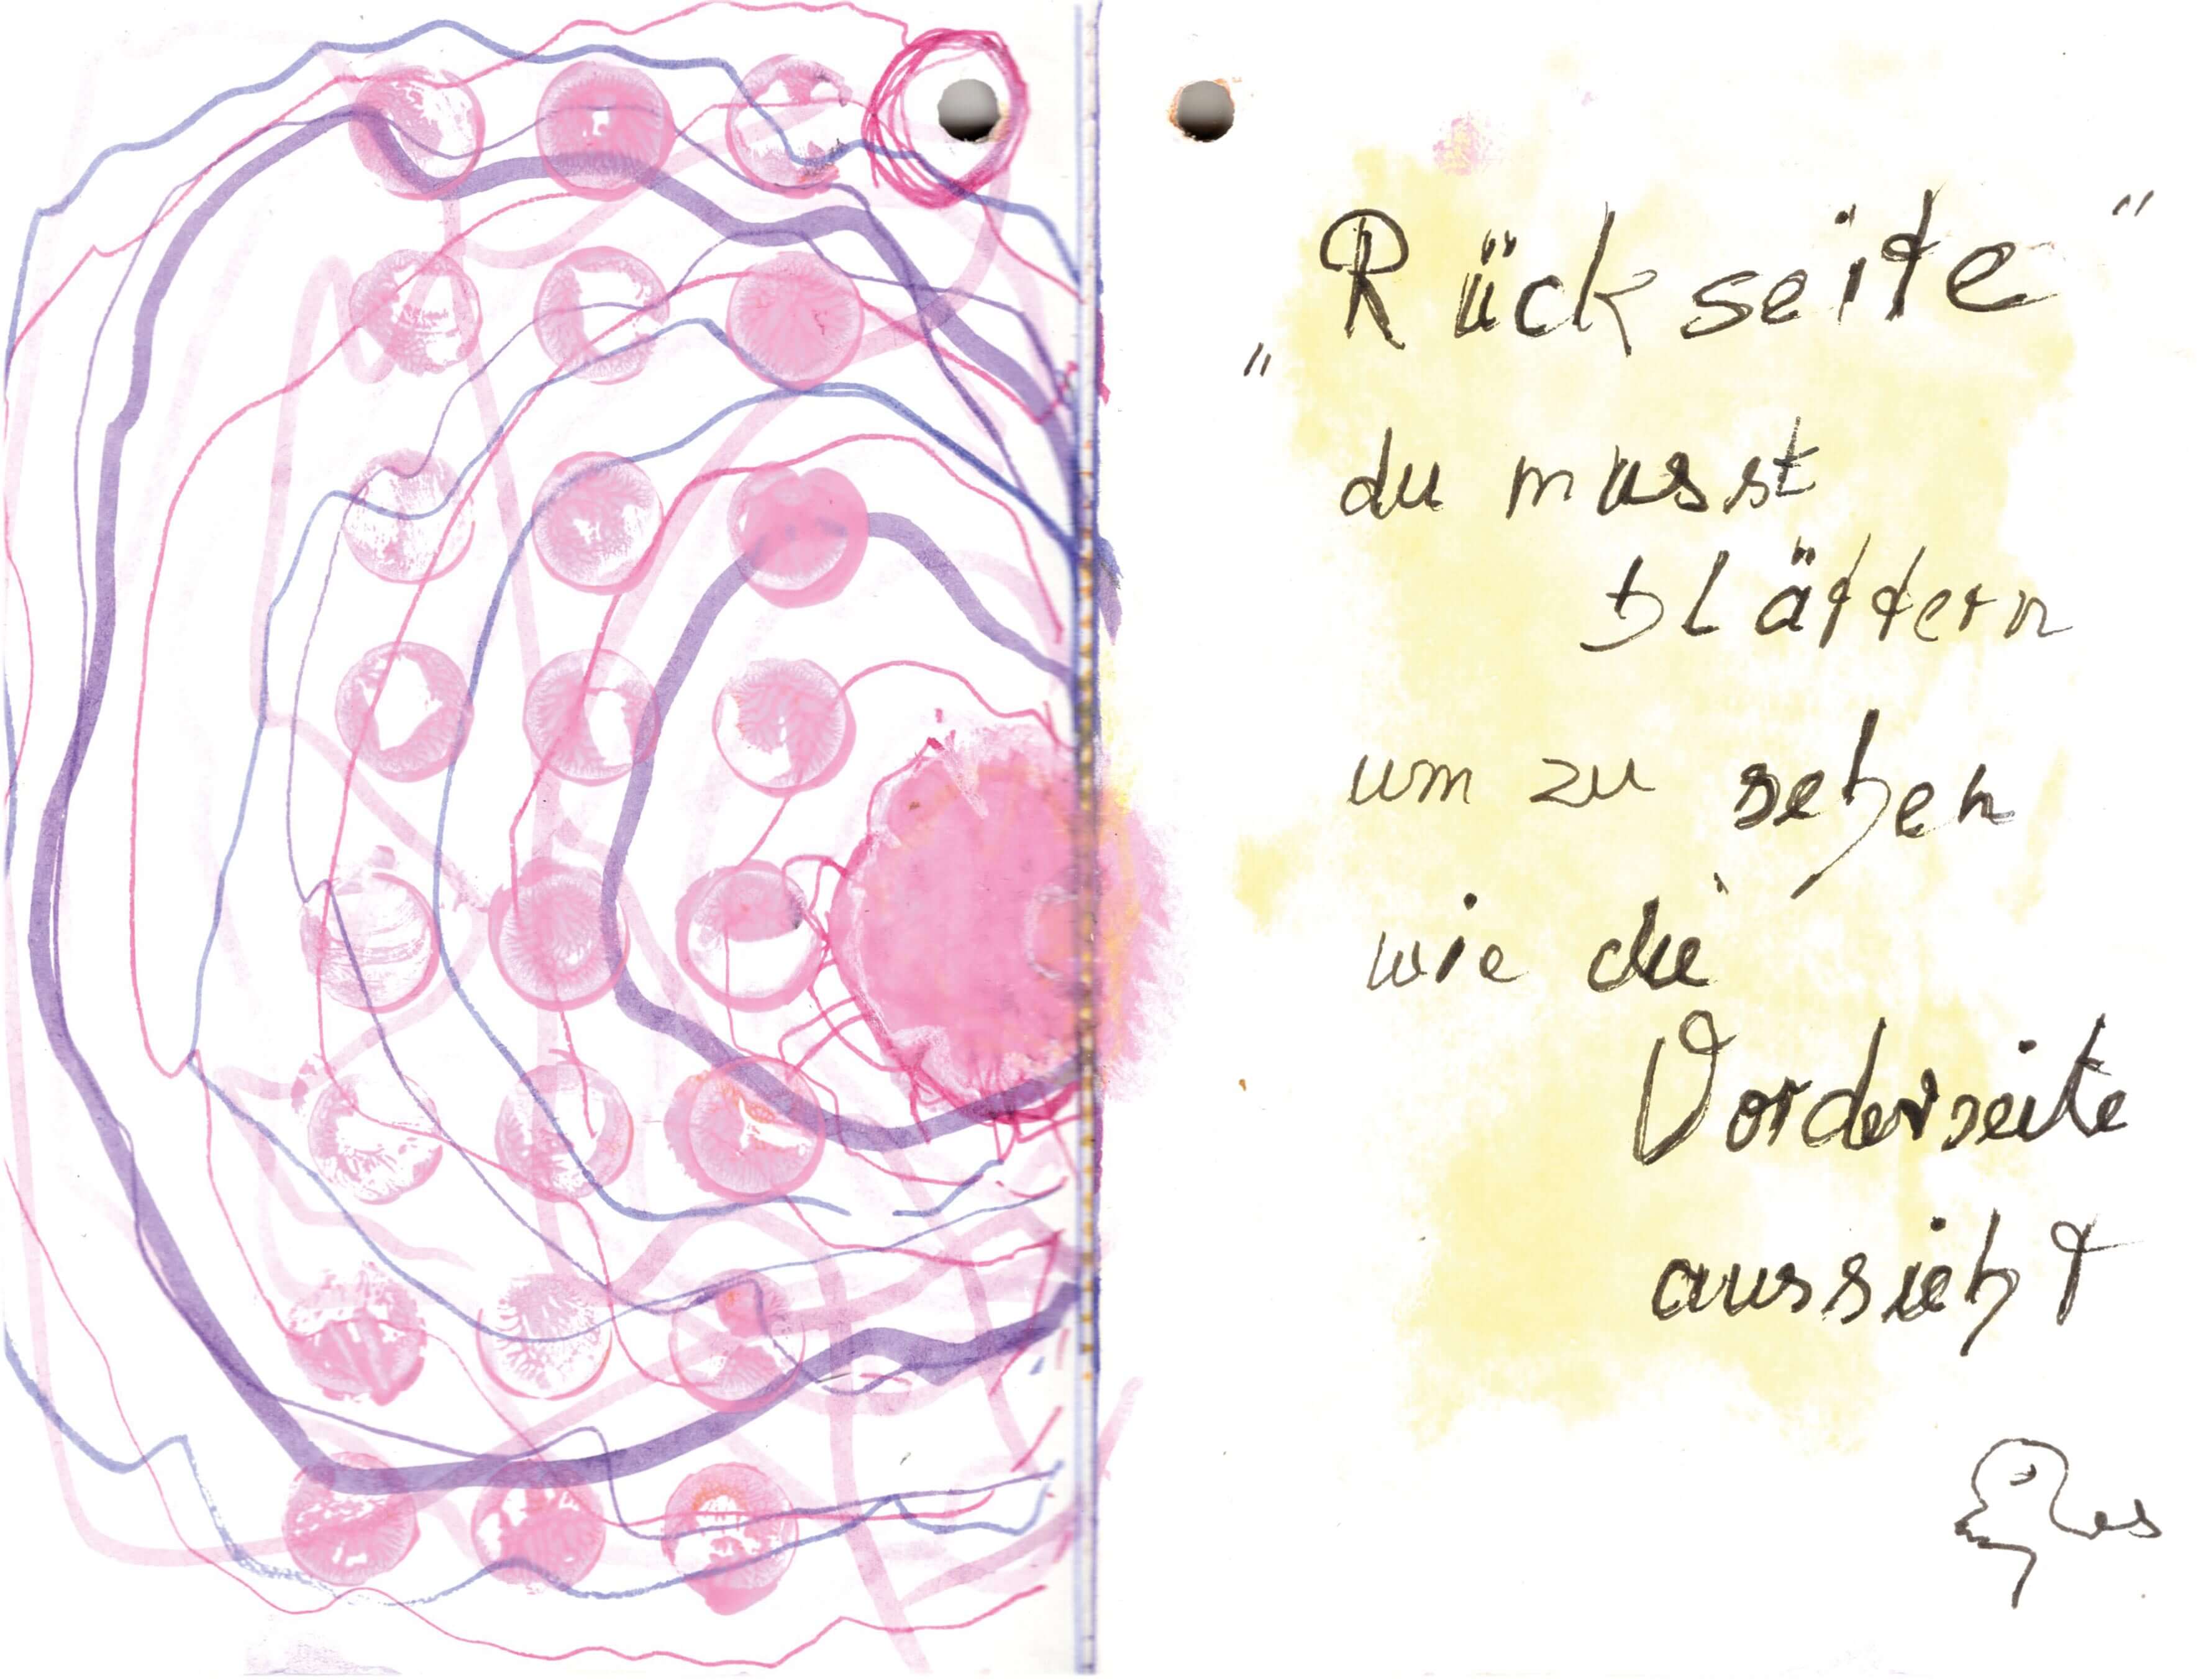 „Rückseite“
du musst
blättern
um zu sehen
wie die
Vorderseite
aussieht